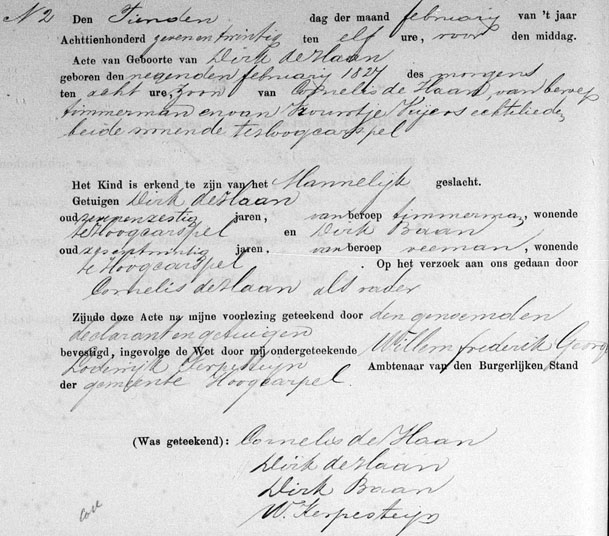 N 2 Den Tienden dag der maand februarij van 't jaar
Achttienhonderd zeven en twintig ten elf ure, voor den middag.
Acte van Geboorte van Dirk de Haan
geboren den negenden februarij 1827 des morgens
ten acht ure, zoon van Cornelis de Haan, van beroep
timmerman en van Trijntje echtelieden
beide wonende te Hoogcarspel
Het Kind is erkend te zijn van het Mannelijk geslacht.
Getuigen Dirk de Haan
oud zeven en zestig jaren, van beroep timmerman, wonende
te Hoogcarspel en Dirk Baan
oud zes en twintig jaren, van beroep veeman, wonende
te Hoogcarspel. Op het verzoek aan ons gedaan door
Cornelis de Haan als vader
Zijnde deze Acte na mijne voorlezing geteekend door den genoemden
declarant en getuigen
bevestigd, ingevolge de Wet door mij ondergeteekende Willem frederik Georg
Lodewijk Kerpesteyn Ambtenaar van den Burgerlijken Stand
der gemeente Hoogcarpel.
(Was geteekend): Cornelis de Haan
Dirk de Haan
Dirk Baan
W. Kerpesteyn